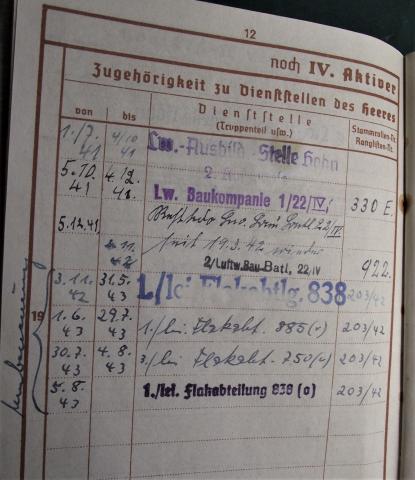 12
noch IV. Aktiver
Zugehörigkeit zu Dienststellen des Heeres
von bis Dienststelle (Truppenteil usw.) Stammrollen-Nr. Ranglisten-Nr.
1./7. 41 4/10 41 Lw.-Ausbild.-Stelle
5.10. 41 4.12. 41. Lw. Baukompanie 1/22/IV, 330 E.
5.12.41 22/IV
2.11. 42 seit 19.3.42 wieder
2/Luftw.Bau-Batl. 22/IV 922.
19
3.11. 42 31.5. 43 L/lei Flakabtlg. 838 203/42
1.6. 43 29.7. 43 1./lei. Flakabt. 885(v) 203/42
30.7. 43 4.8. 43 3./lei. Flakabt. 750(v) 203/42
5.8. 43 1./lei. Flakabteilung 838 (o) 203/42